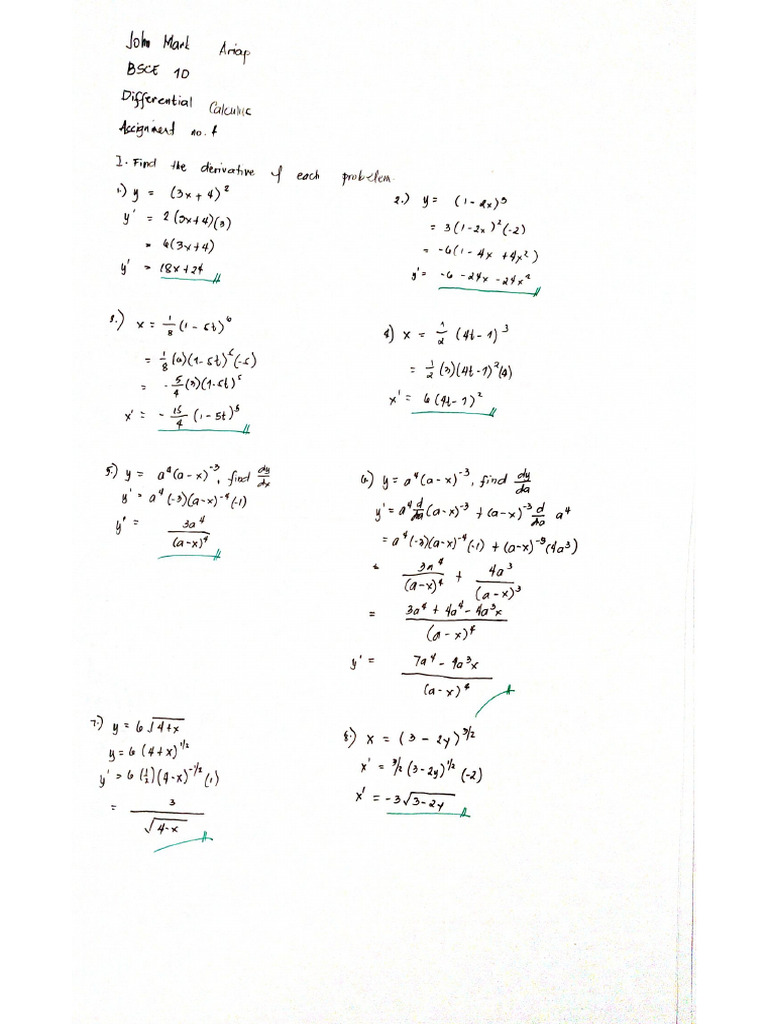 John Mark Ariap
BSCE 1D
Differential Calculus
Assignment no. 4
I. Find the derivative of each problem.
1.) y = (3x + 4)²
y' = 2(3x+4)(3)
= 6(3x+4)
y' = 18x+24
2.) y = (1 - 2x)³
= 3(1-2x)²(-2)
= -6(1 - 4x + 4x²)
y' = -6 - 24x - 24x²
3.) x = 1/8 (1 - 5t)⁶
= 1/8 (6)(1-5t)⁵(-5)
= - 5/4 (3)(1-5t)⁵
x' = - 15/4 (1-5t)⁵
4) x = 1/2 (4t - 1)³
= 1/2 (3)(4t-1)²(4)
x' = 6(4t-1)²
5.) y = a⁴(a-x)⁻³, find dy/dx
y' = a⁴(-3)(a-x)⁻⁴(-1)
y' = 3a⁴/(a-x)⁴
6) y = a⁴(a-x)⁻³, find dy/da
y' = a⁴ d/da (a-x)⁻³ + (a-x)⁻³ d/da a⁴
= a⁴(-3)(a-x)⁻⁴(-1) + (a-x)⁻³(4a³)
= 3a⁴/(a-x)⁴ + 4a³/(a-x)³
= 3a⁴ + 4a⁴ - 4a³x/(a-x)⁴
y' = 7a⁴ - 4a³x/(a-x)⁴
7.) y = 6√4+x
y = 6(4+x)^1/2
y' = 6(1/2)(4-x)^-1/2(1)
= 3/√4-x
8.) x = (3 - 2y)^3/2
x' = 3/2 (3-2y)^1/2 (-2)
x' = -3√3-2y